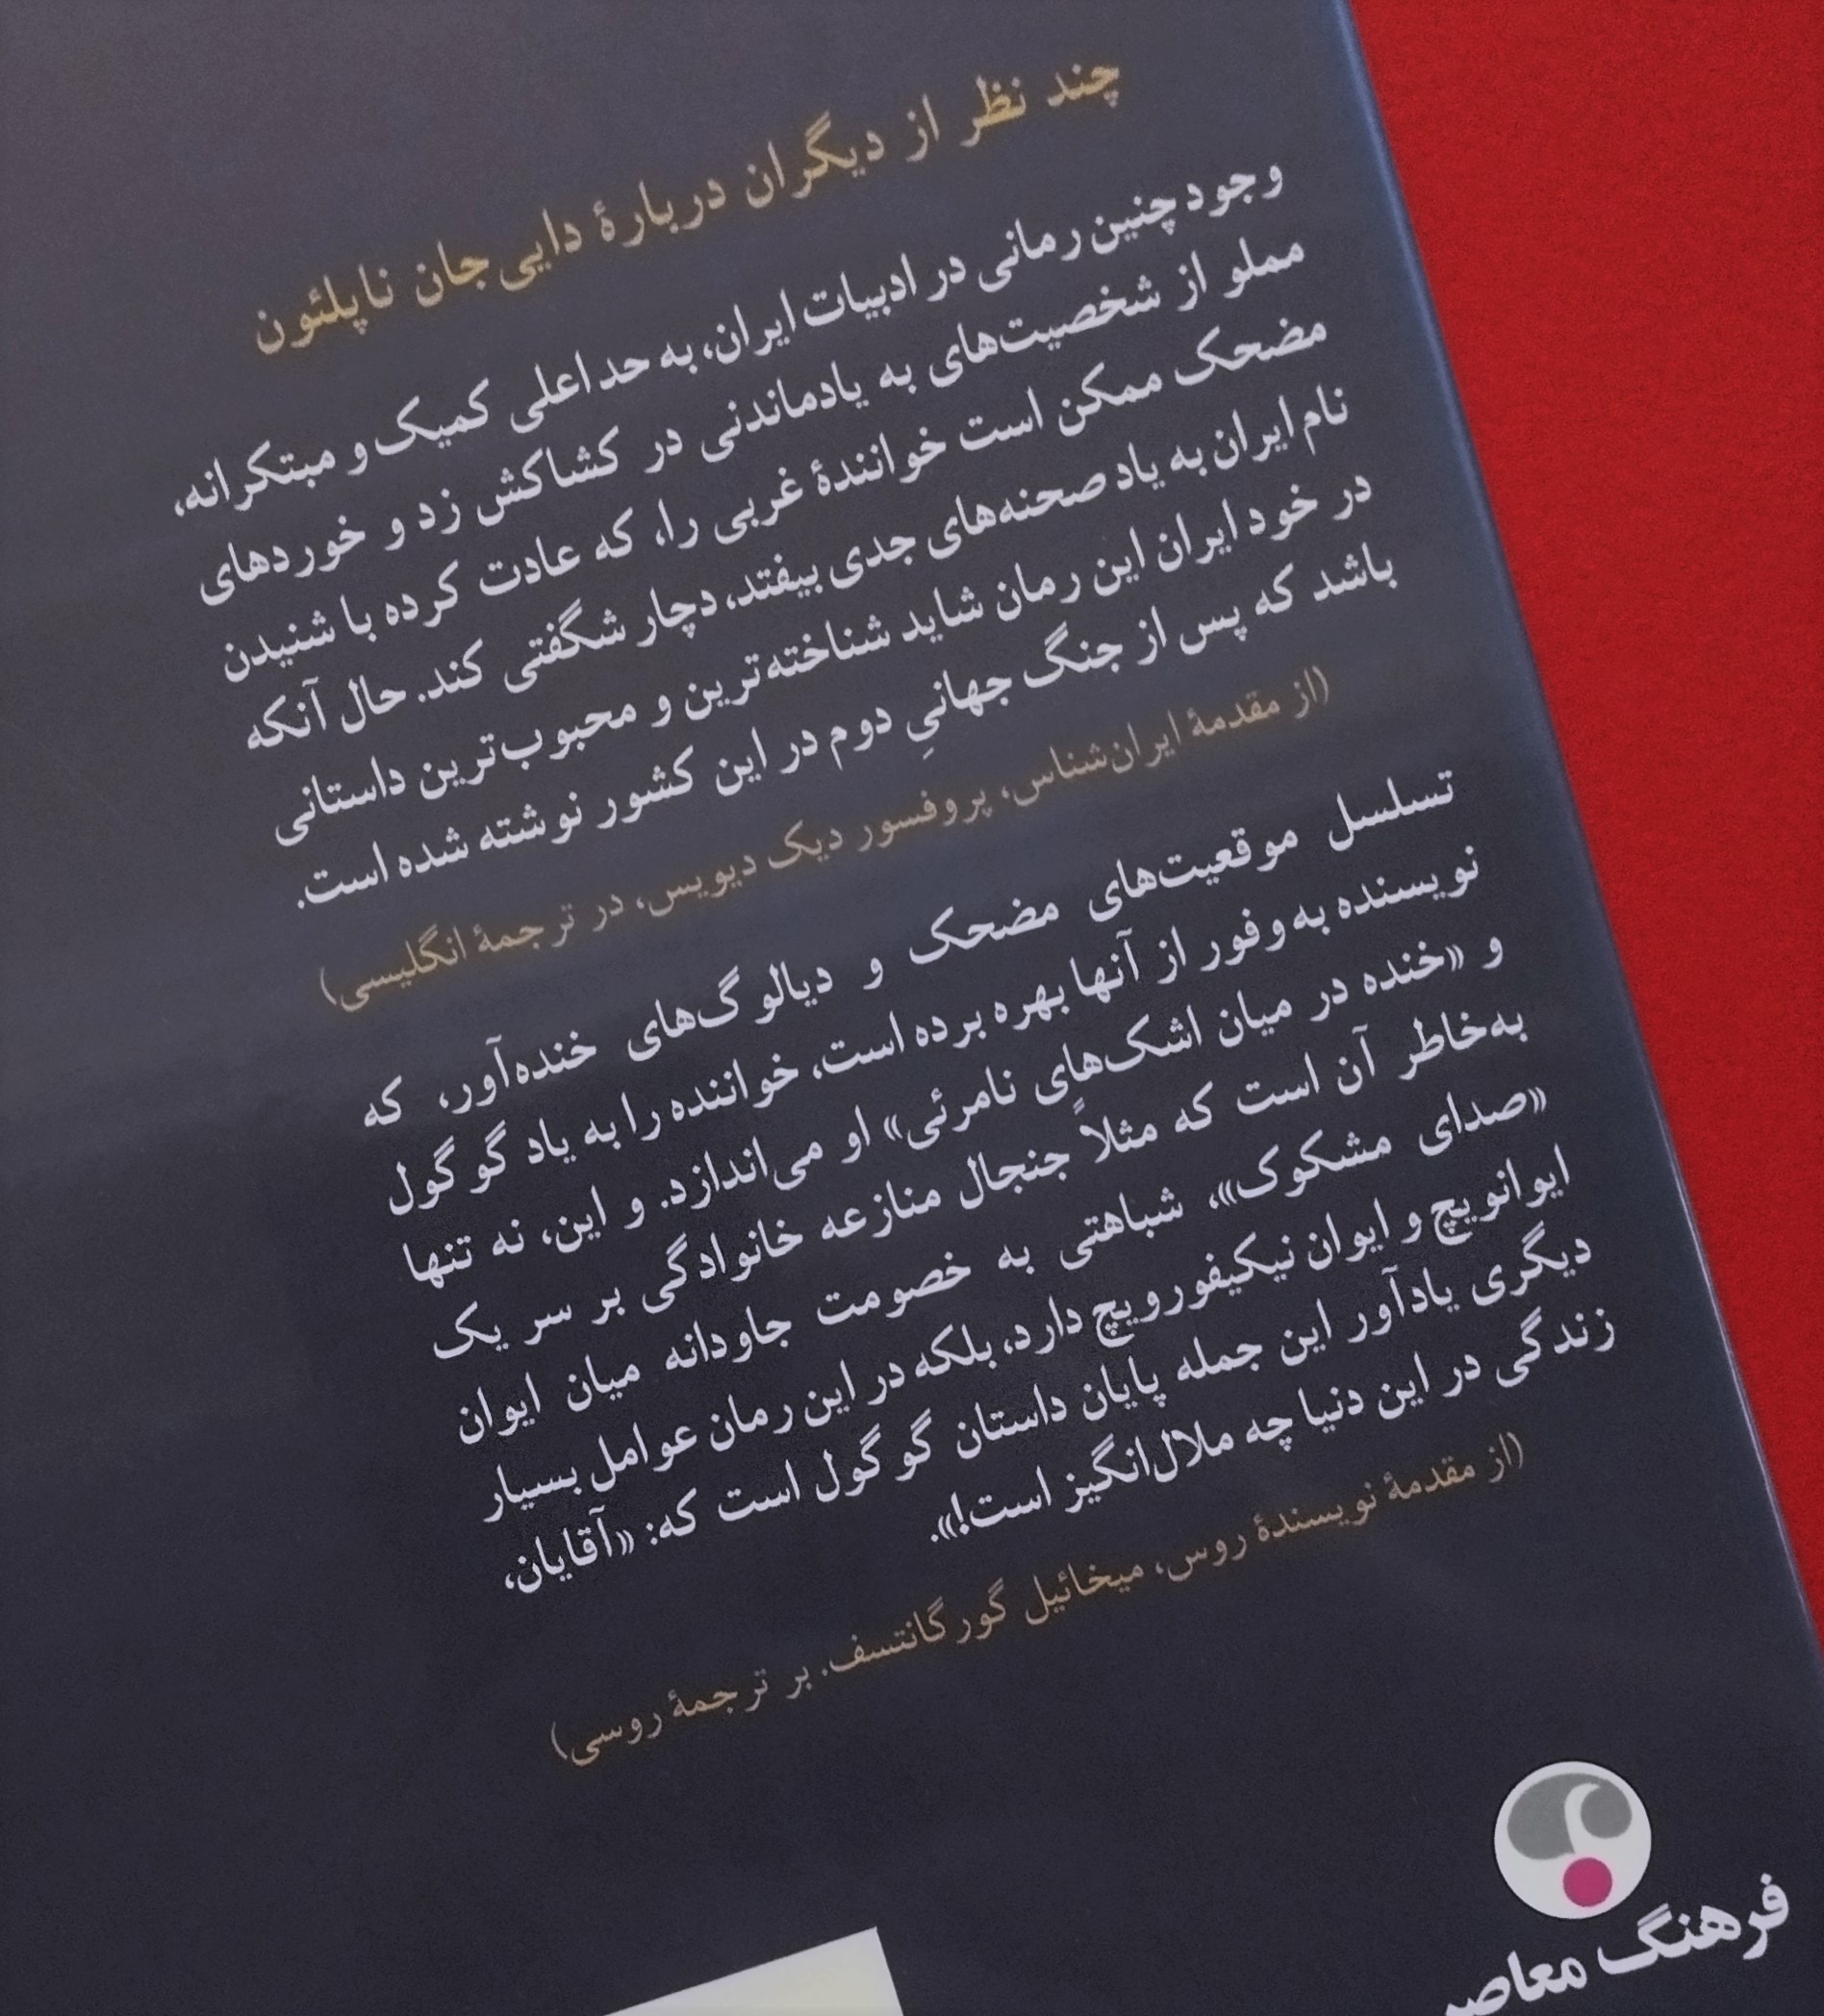 چند نظر از دیگران دربارهٔ دایی جان ناپلئون
وجود چنین رمانی در ادبیات ایران، به حد اعلی کمیک و مبتکرانه،
مملو از شخصیت‌های به یادماندنی در کشاکش زد و خوردهای
مضحک ممکن است خوانندهٔ غربی را، که عادت کرده با شنیدن
نام ایران به یاد صحنه‌های جدی بیفتد، دچار شگفتی کند. حال آنکه
در خود ایران این رمان شاید شناخته‌ترین و محبوب‌ترین داستانی
باشد که پس از جنگ جهانیِ دوم در این کشور نوشته شده است.
(از مقدمهٔ ایران‌شناس، پروفسور دیک دیویس، در ترجمهٔ انگلیسی)
تسلسل موقعیت‌های مضحک و دیالوگ‌های خنده‌آور، که
نویسنده به‌وفور از آنها بهره برده است، خواننده را به یاد گوگول
و «خنده در میان اشک‌های نامرئی» او می‌اندازد. و این، نه تنها
به‌خاطر آن است که مثلاً جنجال منازعه خانوادگی بر سر یک
«صدای مشکوک»، شباهتی به خصومت جاودانه میان ایوان
ایوانویچ و ایوان نیکیفورویچ دارد، بلکه در این رمان عوامل بسیار
دیگری یادآور این جمله پایان داستان گوگول است که: «آقایان،
زندگی در این دنیا چه ملال‌انگیز است!».
(از مقدمهٔ نویسندهٔ روس، میخائیل گورگانتسف. بر ترجمهٔ روسی)
فرهنگ معاصر